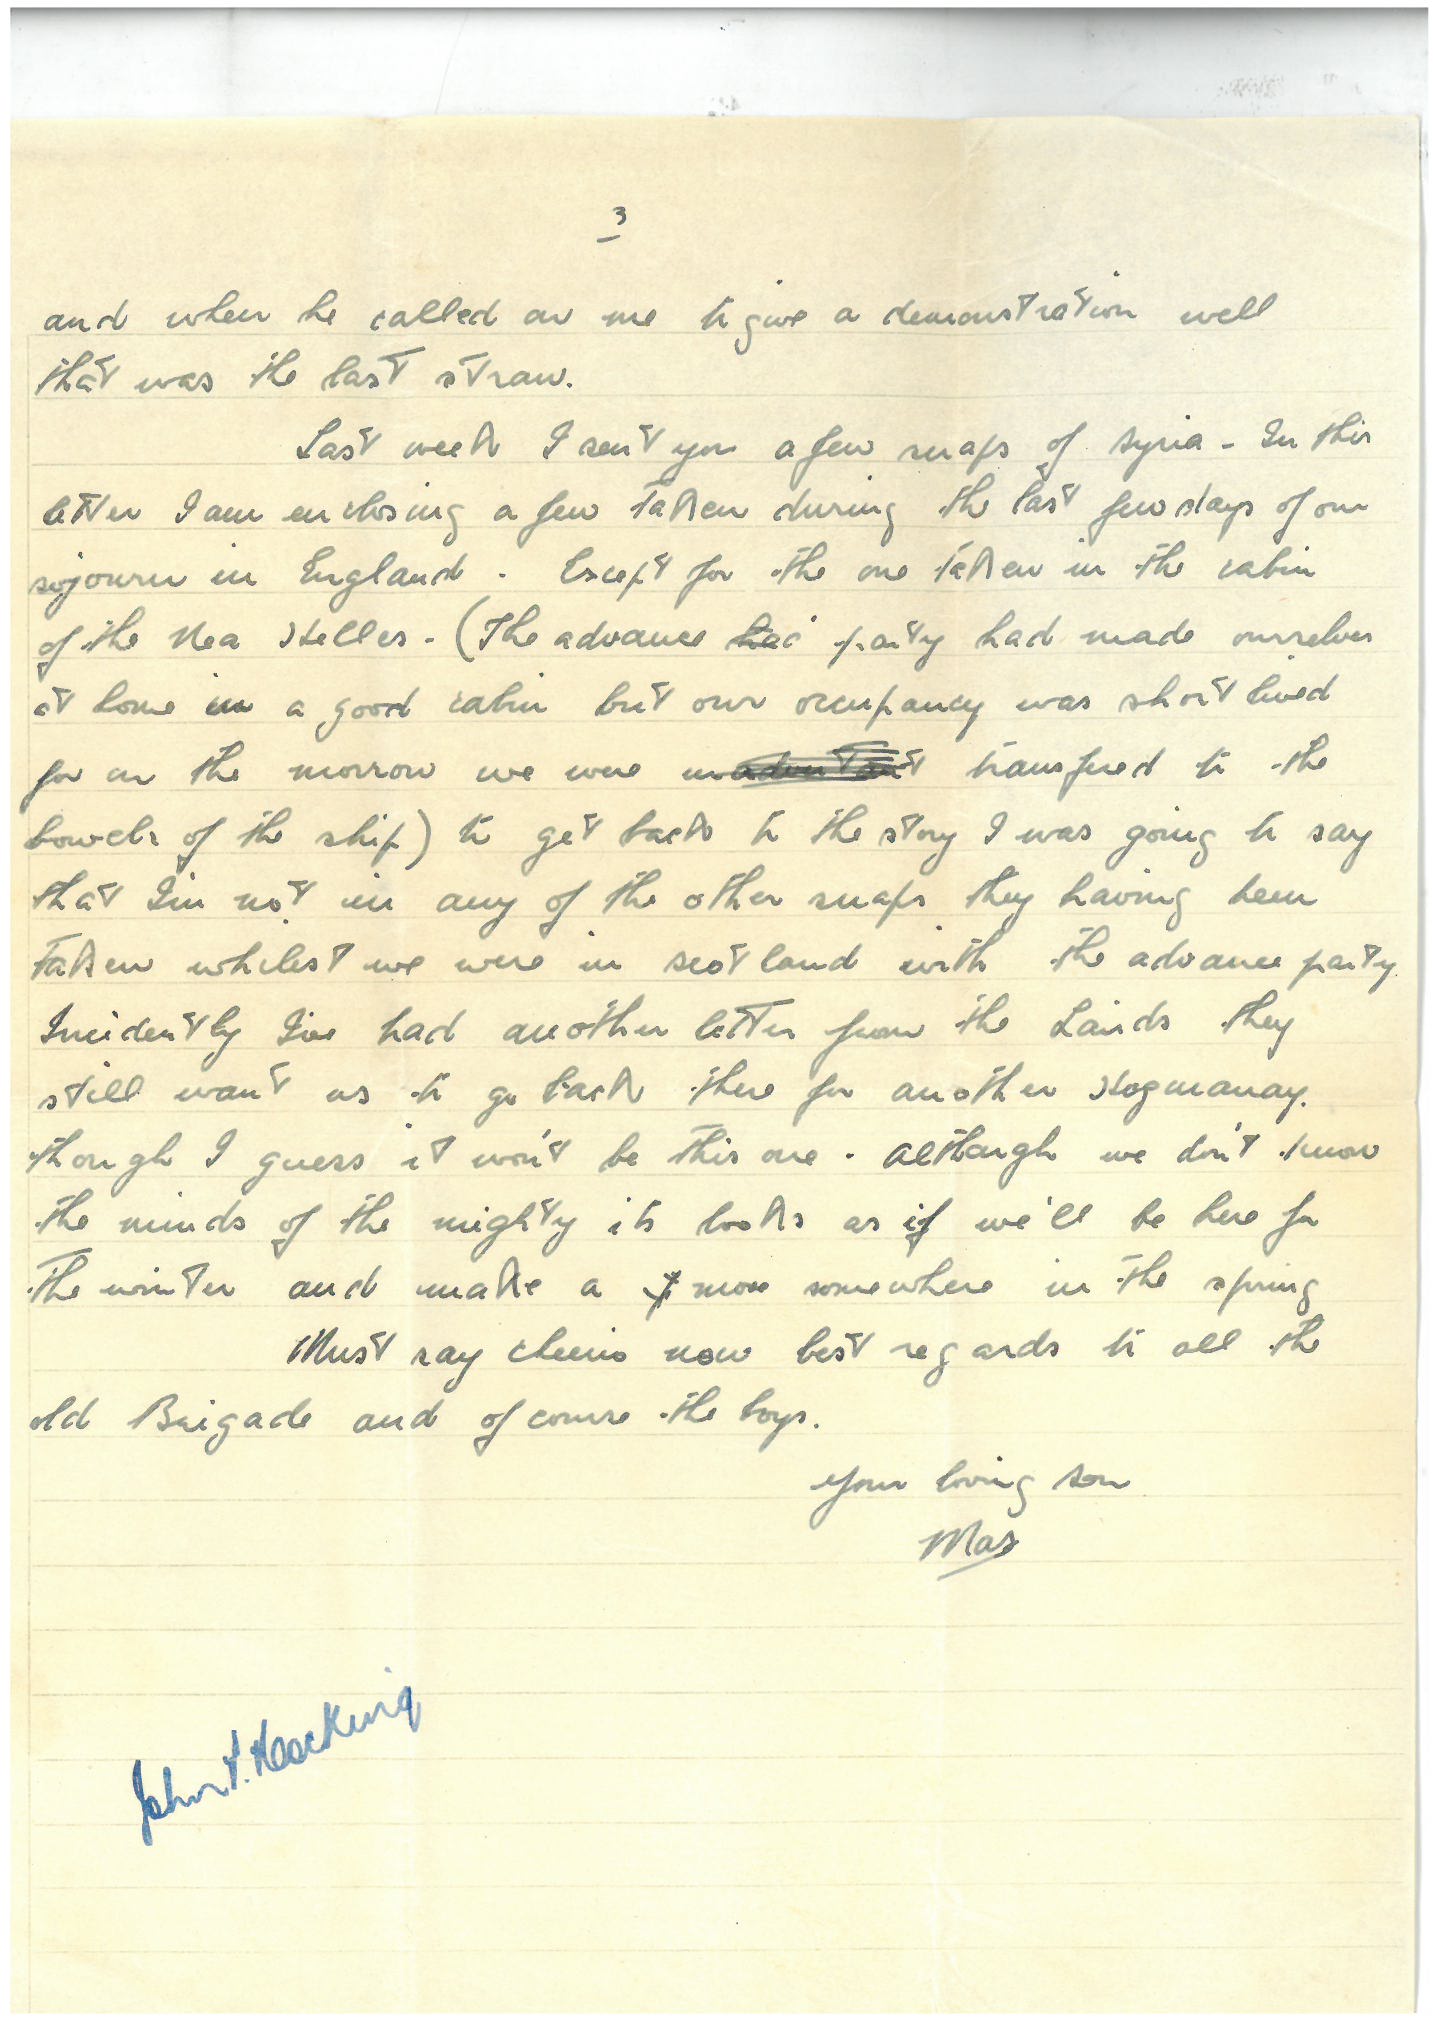 3
and when he called on me to give a demonstration well
that was the last straw.
Last week I sent you a few snaps of Syria - In this
letter I am enclosing a few taken during the last few days of our
sojourn in England. Except for the one taken in the cabin
of the Nea Helles - (The advance party had made ourselves
at home in a good cabin but our occupancy was short lived
for on the morrow we were transfered to the
bowels of the ship) to get back to the story I was going to say
that I'm not in any of the other snaps they having been
taken whilest we were in Scotland with the advance party.
Incidently I've had another letter from the Lairds they
still want us to go back there for another Hogmanay.
though I guess it won't be this one. Although we don't know
the minds of the mighty its looks as if we'll be here for
the winter and make a move somewhere in the spring
Must say cheerio now best regards to all the
old Brigade and of course the boys.
Your loving son
Max
John Hocking